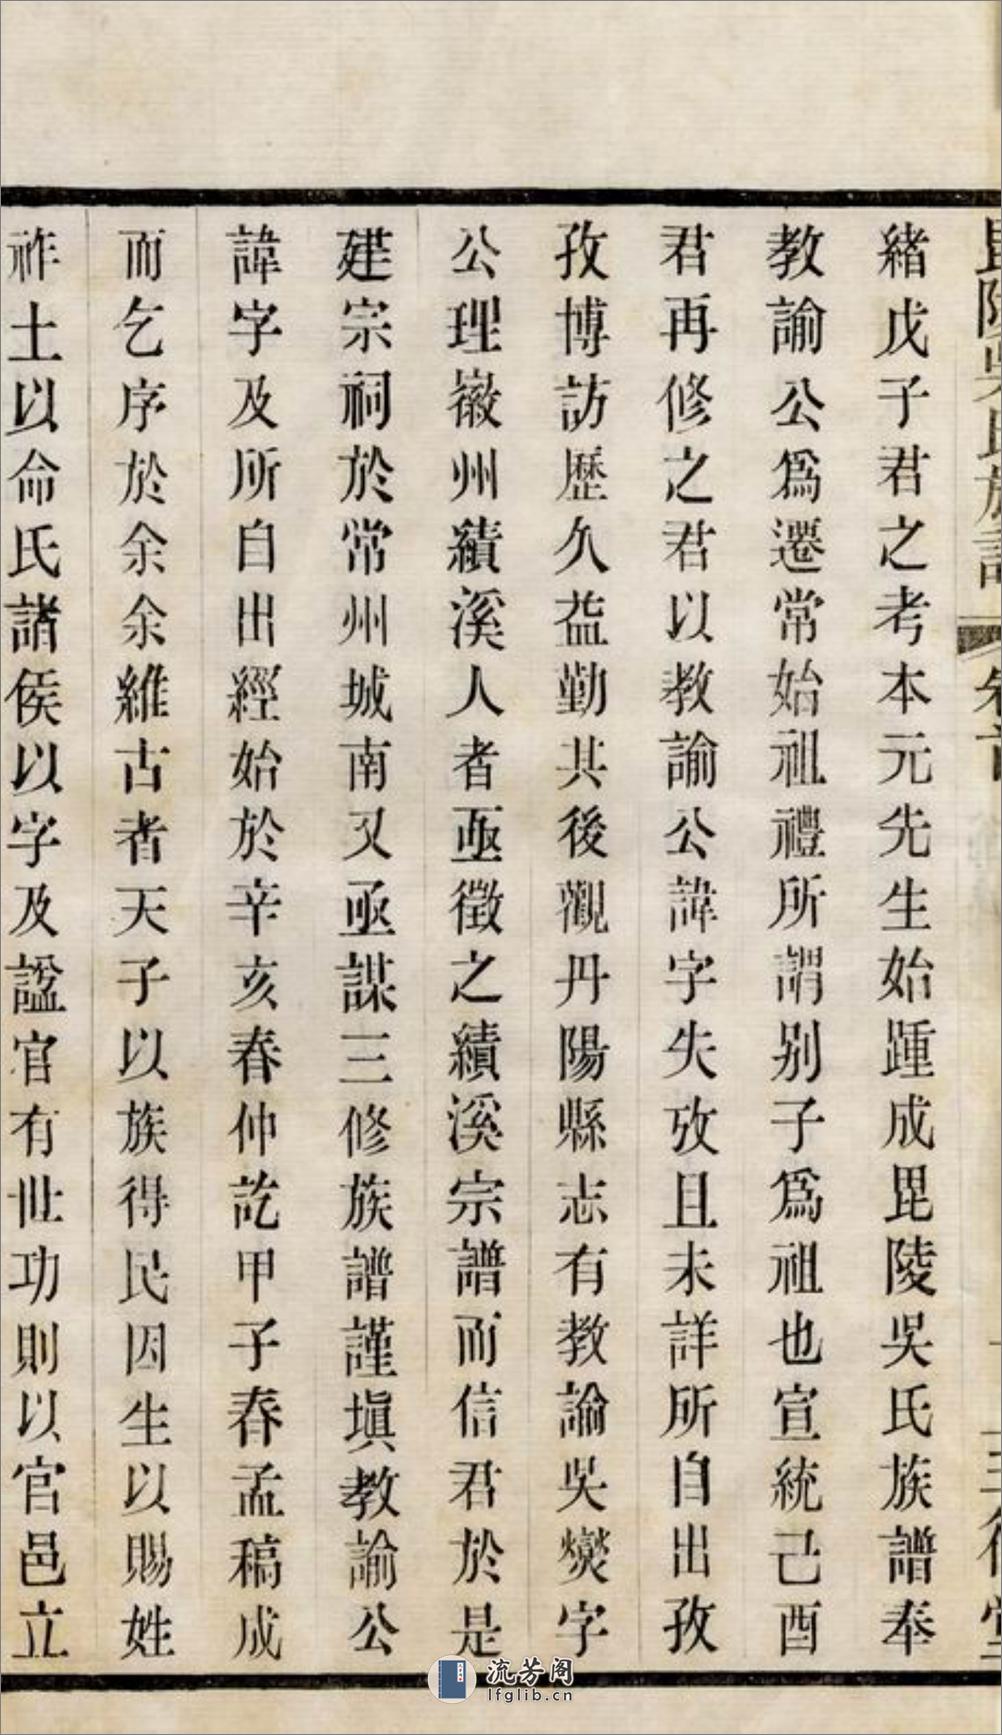 毘陵吳氏族譜 卷首 三德堂
緒戊子君之考本元先生始踵成毘陵吳氏族譜奉
教諭公爲遷常始祖禮所謂別子爲祖也宣統己酉
君再修之君以教諭公諱字失攷且未詳所自出孜
孜博訪歷久益勤其後觀丹陽縣志有教諭吳爕字
公理徽州績溪人者亟徵之績溪宗譜而信君於是
建宗祠於常州城南又亟謀三修族譜謹塡教諭公
諱字及所自出經始於辛亥春仲訖甲子春孟稿成
而乞序於余余維古者天子以族得民因生以賜姓
祚土以命氏諸侯以字及諡官有世功則以官邑立
流芳阁
lfglib.cn